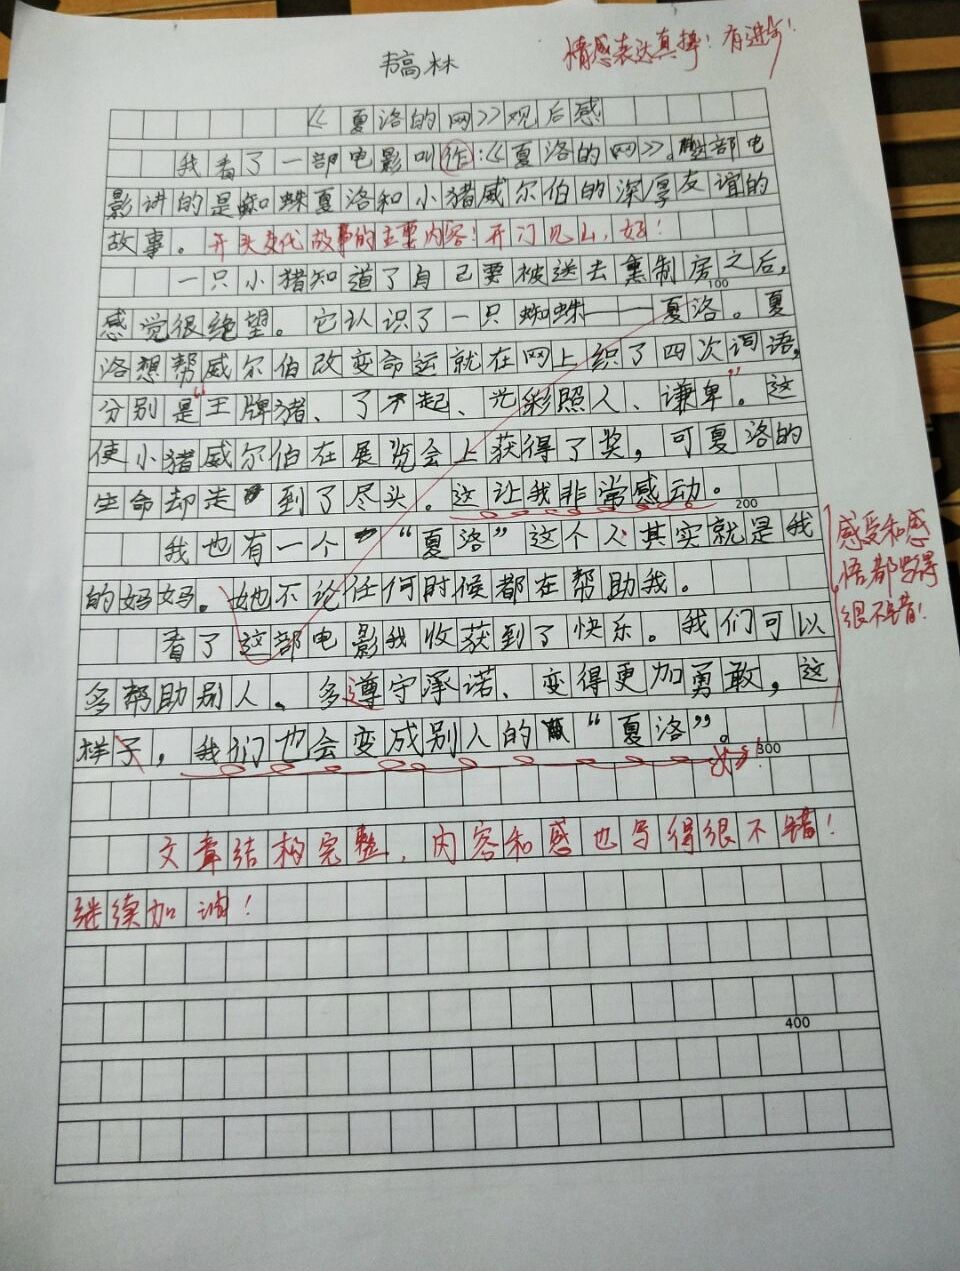 韩高林
情感表达真挚！有进步！
《夏洛的网》观后感
我看了一部电影叫作：《夏洛的网》。这部电
影讲的是蜘蛛夏洛和小猪威尔伯的深厚友谊的
故事。开头交代故事的主要内容！开门见山，好！
一只小猪知道了自己要被送去熏制房之后，
100
感觉很绝望。它认识了一只蜘蛛——夏洛。夏
洛想帮威尔伯改变命运就在网上织了四次词语，
分别是“王牌猪、了不起、光彩照人、谦卑”。这
使小猪威尔伯在展览会上获得了奖，可夏洛的
生命却走到了尽头。这让我非常感动。
200
我也有一个“夏洛”这个人其实就是我
的妈妈。她不论任何时候都在帮助我。
感受和感
悟都写得
很不错！
看了这部电影我收获到了快乐。我们可以
多帮助别人、多遵守承诺、变得更加勇敢，这
样子，我们也会变成别人的“夏洛”。
好！
300
文章结构完整，内容和感也写得很不错！
继续加油！
400